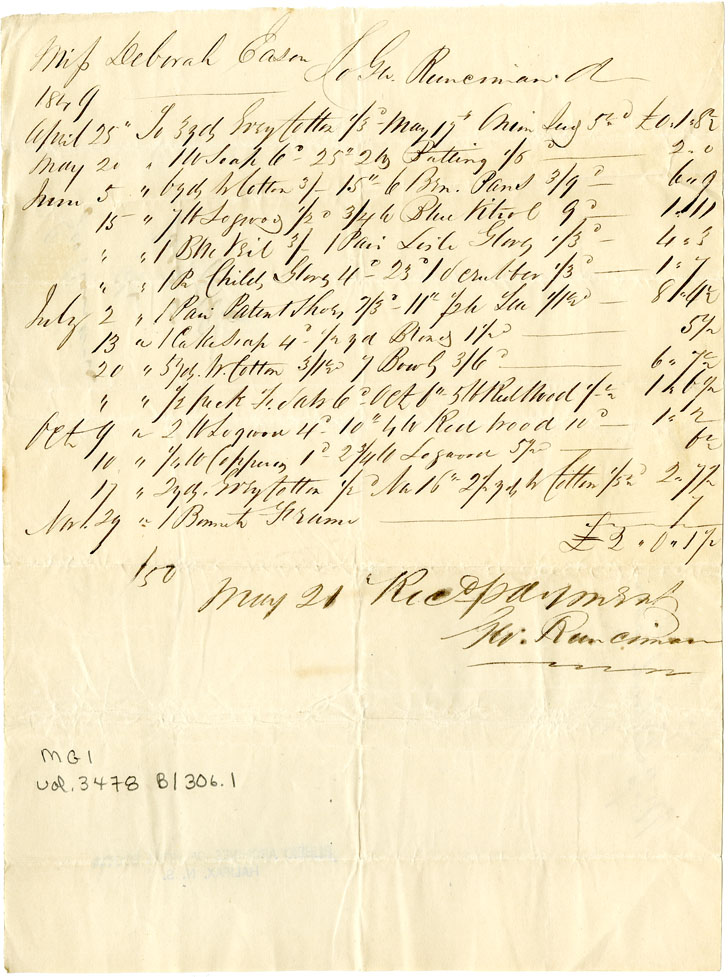 Miss Deborah Eason To Geo. Runciman Dr
1849
April 25" To 3 yds Grey Cotton May 17th Onion Seed 5½d £0.1.8½
May 20 " 1 lb Soap 6d 25" 2 lb Batting 1/6 2.0
June 5 " 6 yds W Cotton 3/- 15" 6 Brn. Pans 3/9d 6.9
15 " 7 lb Logwood 1/2d 3/4 lb Blue Vitrol 9d 1.11
" " 1 Blk Veil 3/- 1 Pair Lisle Gloves 1/3d 4.3
" " 1 Pr Childs Gloves 4d 23d 1 Scrubber 1/3d 1.7
July 2 " 1 Pair Patent Shoes 7/3d 11" ½ lb Tea 1/1½d 8.4½
13 " 1 Cake Soap 4d ½ yd Blond 1½d 5½
20 " 5 yds. W Cotton 3/1½d 7 Bowls 3/6d 6.7½
" " ½ peck F. Salt 6d Oct 6" 5 lb Redwood 1.6½
Oct 9 " 2 lb Logwood 4d 10" 4 lb Redwood 10d 1.2
10 " ¼ lb Copperas 1d 2¾ lb Logwood 5½d 6½
17 " 2 yds. Grey Cotton 1/2d Nov 16" 2½ yds W Cotton 1/5½d 2.7½
Nov. 29 " 1 Bonnet Frame 7
£2.0.1½
/50
May 21 Recd payment
Geo. Runciman
MG1
vol. 3478 B/306.1
HALIFAX, N. S.